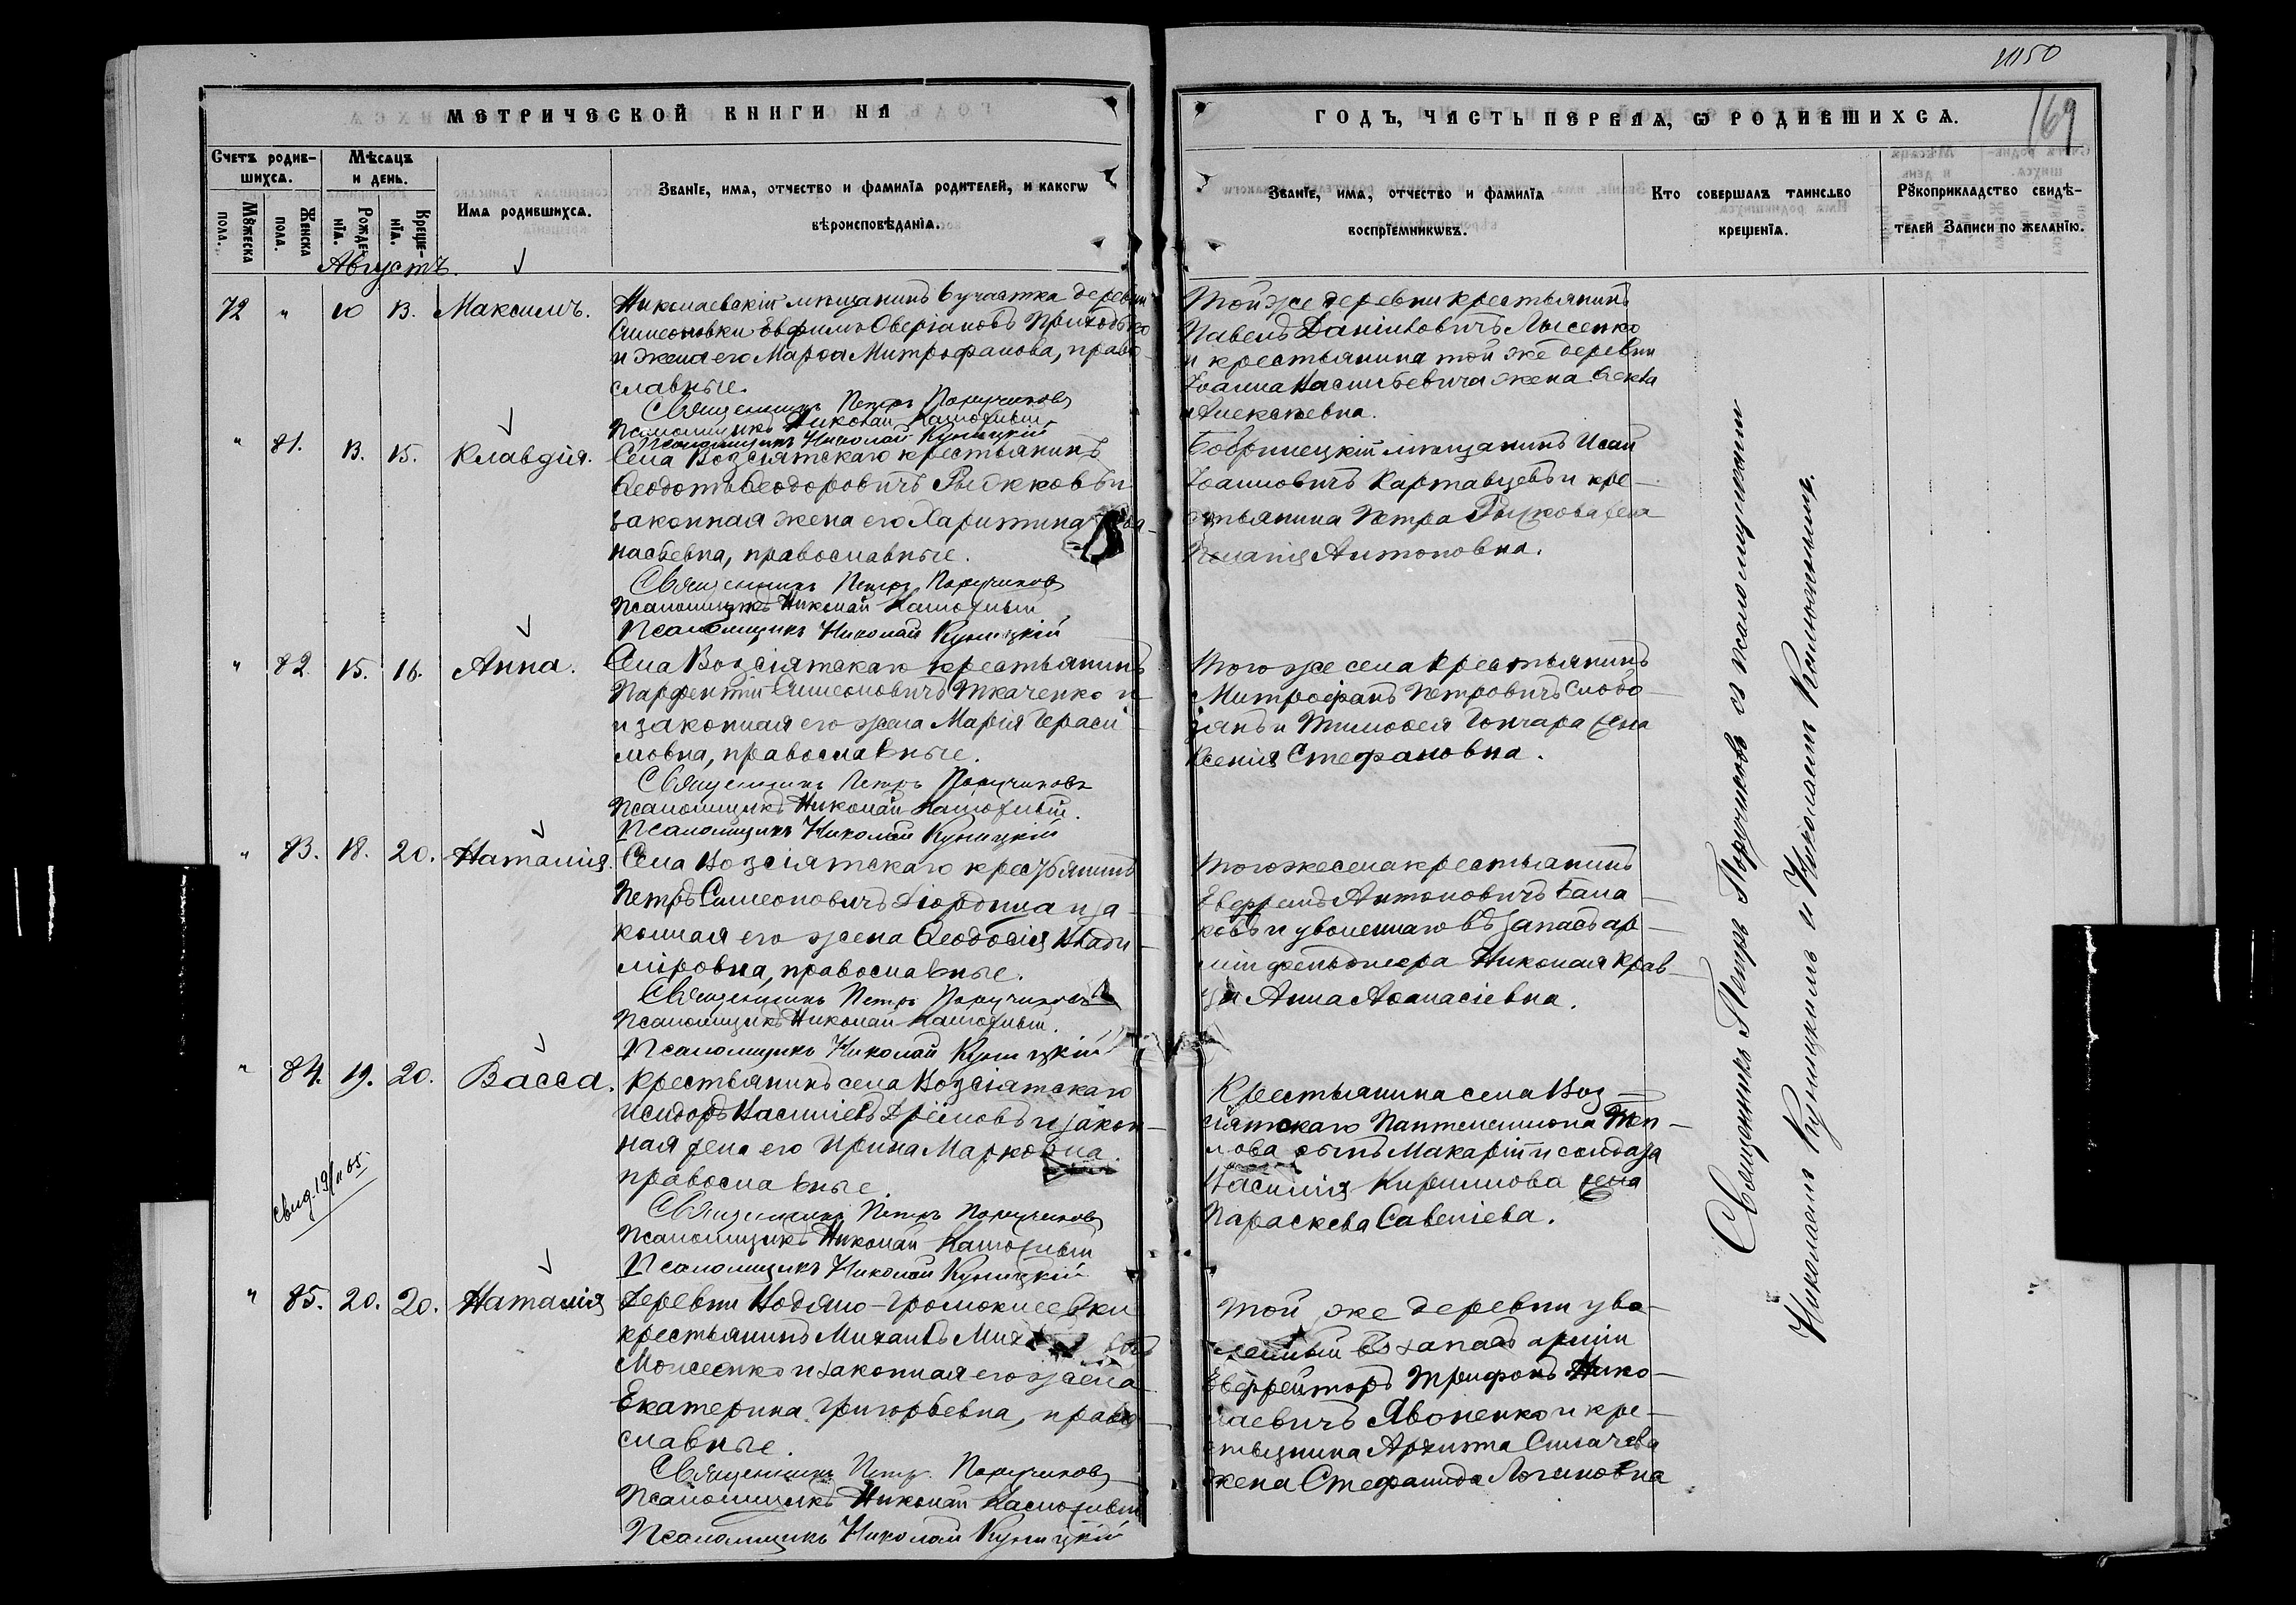 1150
169
МЕТРИЧЕСКОЙ КНИГИ НА
ГОДЪ, ЧАСТЬ ПЕРВАЯ, Ѡ РОДИВШИХСЯ.
Счетъ родив-
шихся.
Мѣсяцъ
и день.
Мꙋжеска
пола.
Женска
пола.
Рожде-
нїя.
Креще-
нїя.
Имя родившихся.
Званїе, имя, отчество и фамилїя родителей, и какогѡ
вѣроисповѣданїя.
Званїе, имя, отчество и фамилїя
воспрїемникѡвъ.
Кто совершалъ таинство
крещенїя.
Рꙋкоприкладство свидѣ-
телей записи по желанїю.
Августъ.
72 " 10 13. Максимъ.
Николаевскій мѣщанинъ 6 участка деревни
Симеоновки Евфимъ Оверіановъ Приходько
и жена его Марѳа Митрофанова, право-
славные.
Священникъ Петръ Поручиковъ
Псаломщикъ Николай
Псаломщикъ Николай Куницкій
Той же деревни крестьянинъ
Павелъ Даніиловичъ Лысенко
и крестьянина той же деревни
Іоанна Васильевича жена Ѳекла
Алексѣевна.
" 81. 13. 15. Клавдія.
Села Возсіятскаго крестьянинъ
Ѳеодотъ Ѳеодоровичъ и
законная жена его Харитина
насьевна, православные.
Священникъ Петръ Поручиковъ
Псаломщикъ Николай
Псаломщикъ Николай Куницкій
Бобринецкій мѣщанинъ Исай
Іоанновичъ Картавцевъ и кре-
стьянина Петра Рыжкова жена
Пелагія Антоновна.
" 82. 15. 16. Анна.
Села Возсіятскаго крестьянинъ
Парфентій Симеоновичъ Ткаченко и
и законная его жена Марія Гераси
мовна, православные.
Священникъ Петръ Поручиковъ
Псаломщикъ Николай
Псаломщикъ Николай Куницкій
Того же села крестьянинъ
Митрофанъ Петровичъ Слобо-
зянъ и Тимоѳея Гончара жена
Ксенія Стефановна.
" 83. 18. 20. Наталія.
Села Возсіятскаго крестьянинъ
Петръ Симеоновичъ Діордица и за-
конная его жена Ѳеодосія Влади-
міровна, православные.
Священникъ Петръ Поручиковъ
Псаломщикъ Николай
Псаломщикъ Николай Куницкій
Того же села крестьянинъ
Евфремъ Антоновичъ Бала-
ковъ и уволеннаго въ запасъ ар-
міи фельдшера Николая Крав-
ца Анна Аѳанасіевна.
" 84. 19. 20. Васса.
Свид. 19
Крестьянинъ села Возсіятскаго
Исидоръ Василіевъ и закон-
ная жена его Ирина Марковна.
православные.
Священникъ Петръ Поручиковъ
Псаломщикъ Николай
Псаломщикъ Николай Куницкій
Крестьянина села Воз-
сіятскаго Пантелеимона Теп-
лова сынъ Макарій и солдата
Василія Кириллова жена
Параскева Савеліева.
" 85. 20. 20. Наталія
Деревни Водяно-Громоклеевки
крестьянинъ Михаилъ
Моисеенко и законная его жена
Екатерина Григорьевна, право-
славные.
Священникъ Петръ Поручиковъ
Псаломщикъ Николай
Псаломщикъ Николай Куницкій
Той же деревни уво-
ленный въ запасъ арміи
Ефрейторъ Трифонъ Нико-
лаевичъ Явоненко и кре-
стьянина Архипа Силачева
жена Стефанида Логиновна
Священникъ Петръ Поручиковъ съ псаломщиками
Николаемъ Куницкимъ и Николаемъ